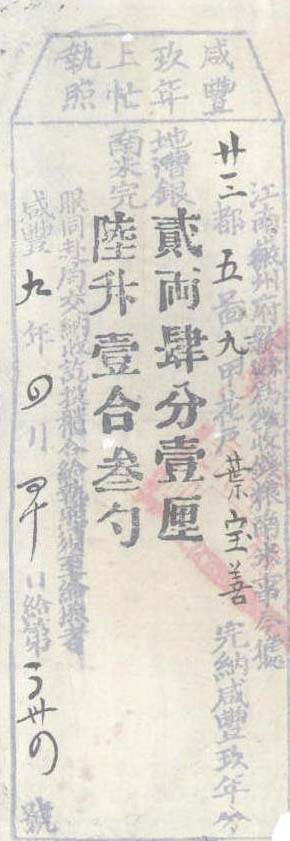 咸豐玖年上忙執照
江南徽州府歙縣爲徵收錢糧南米事今據
廿三都五啚九甲花戶葉宝善完納咸豐玖年分
地漕銀貳兩肆分壹厘
南米完陸升壹合叁勺
眼同赴局交納收訖投櫃合給執照須至給照者
咸豐九年四月日給第號